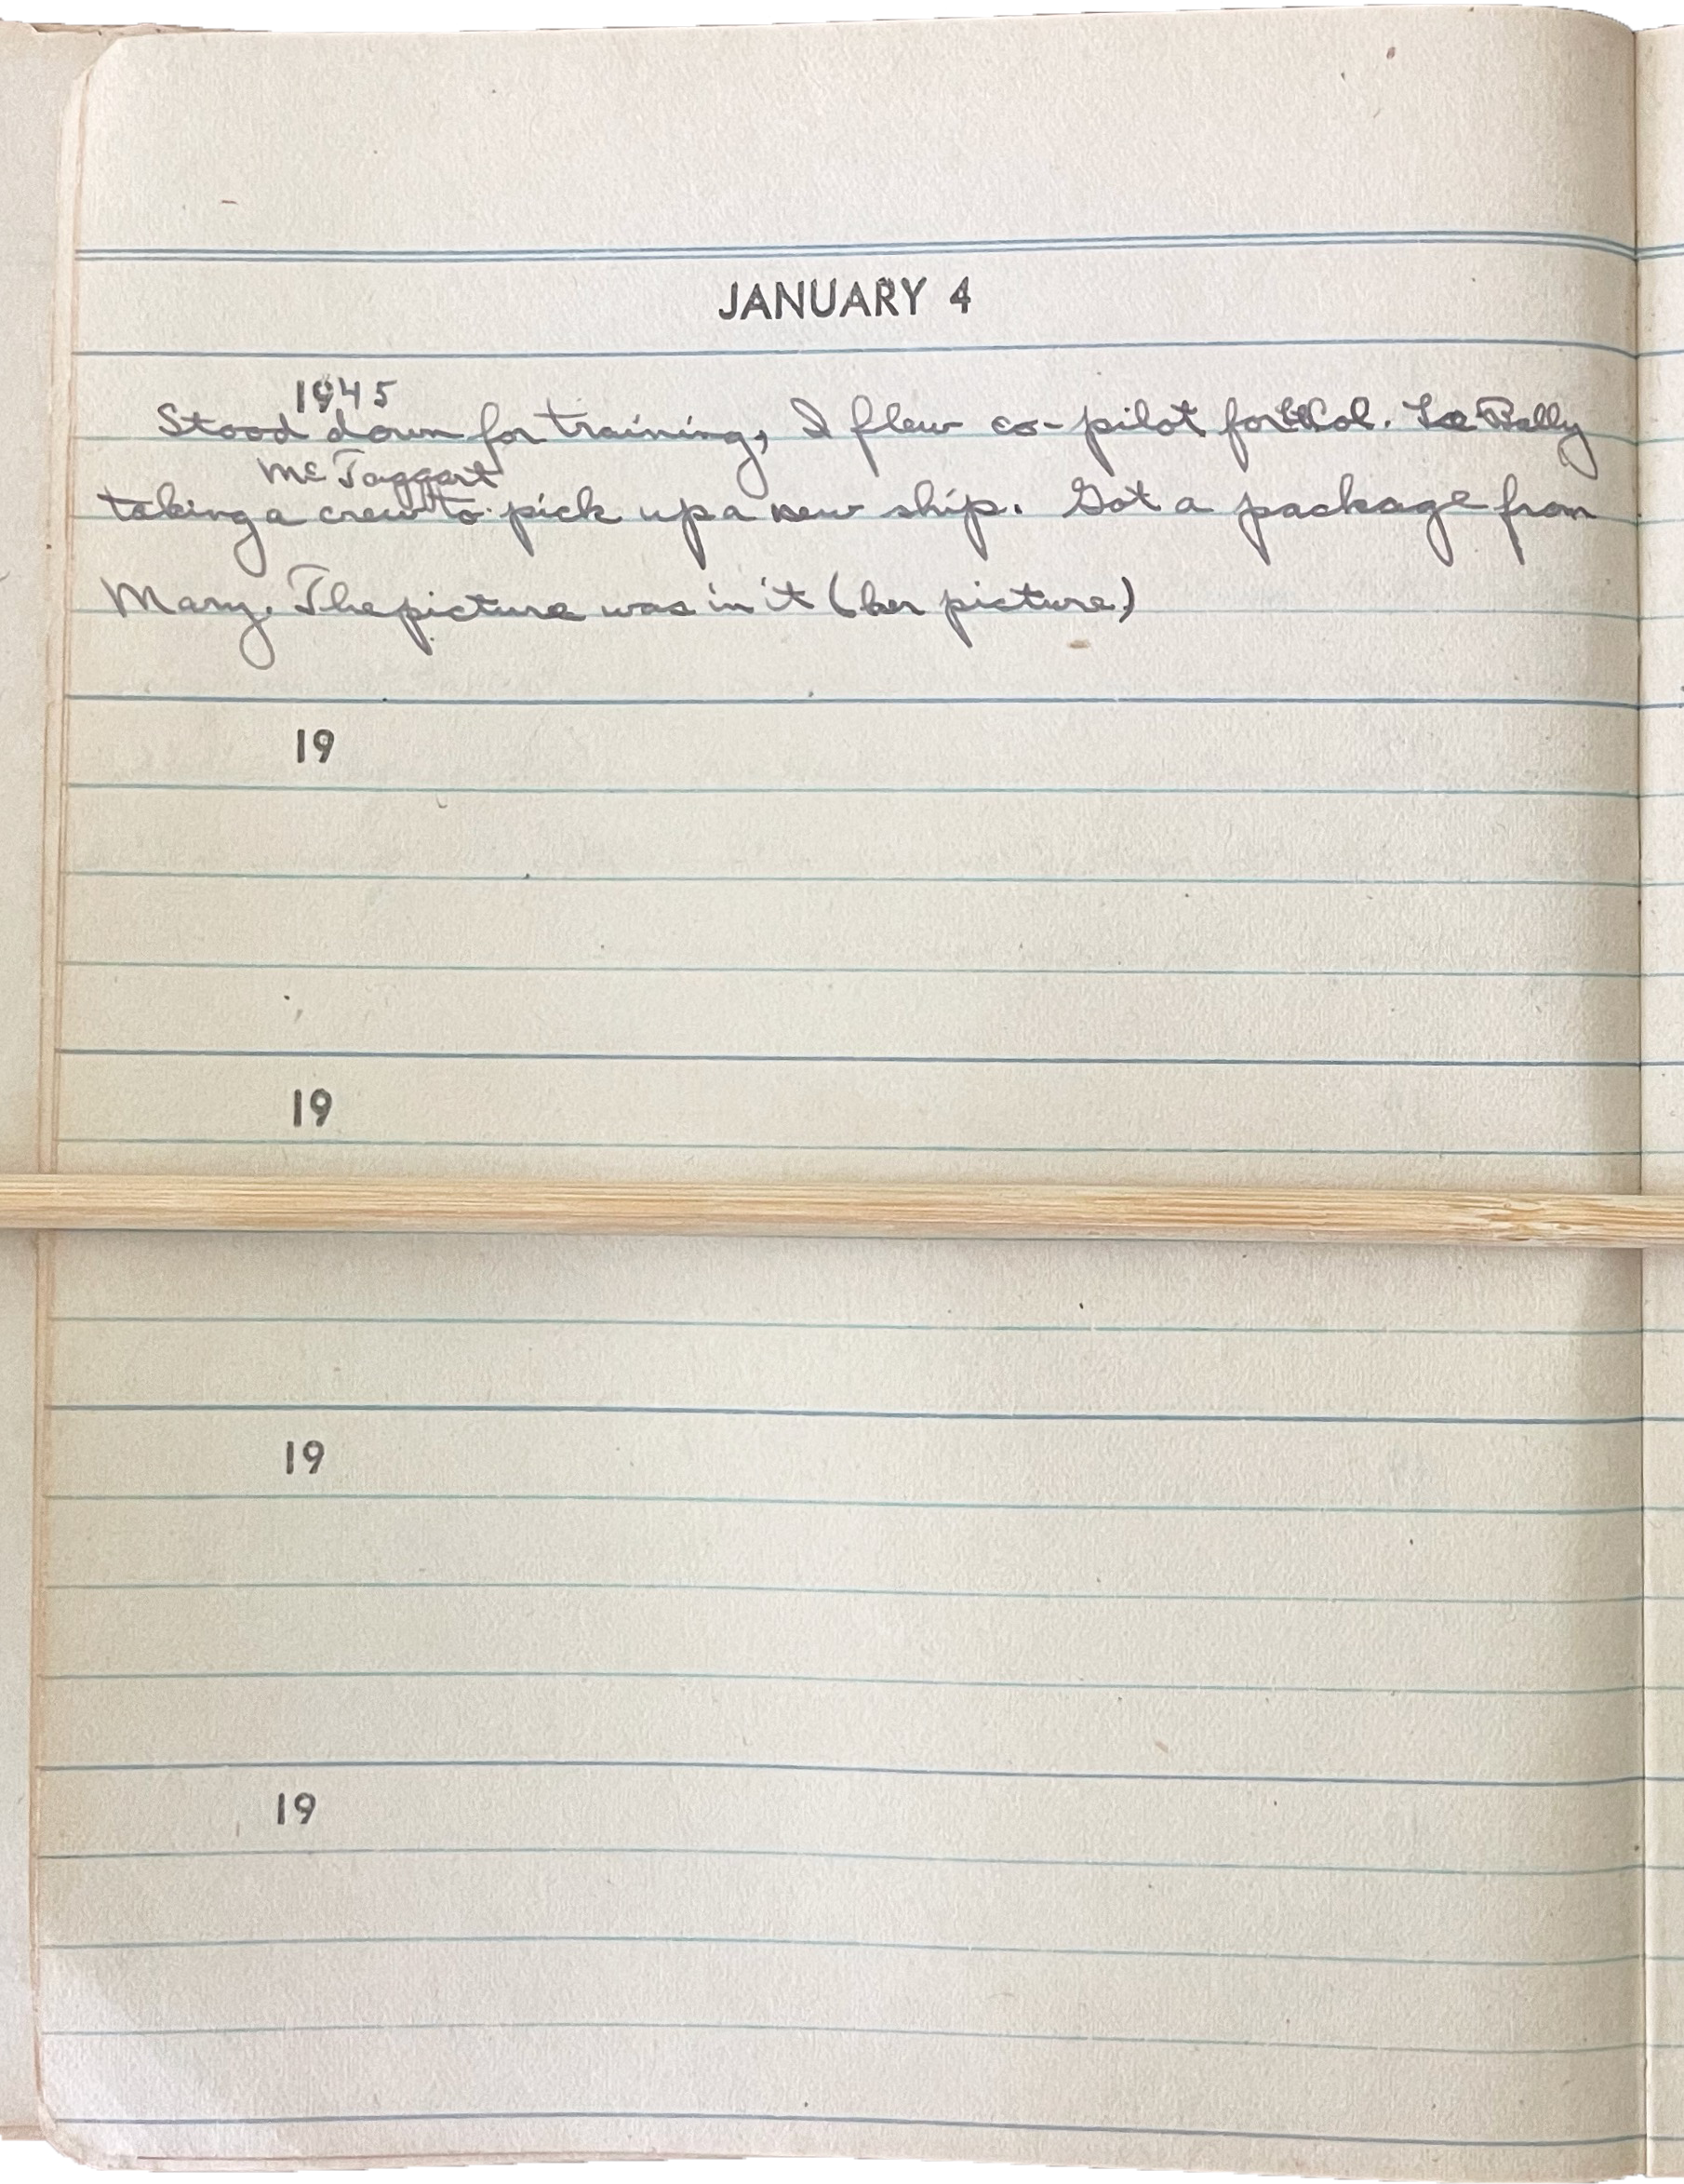 JANUARY 4
1945
Stood down for training, I flew co-pilot for Lt Col. Le Bally
McTaggart
taking a crew to pick up a new ship. Got a package from
Mary. The picture was in it (her picture)
19
19
19
19